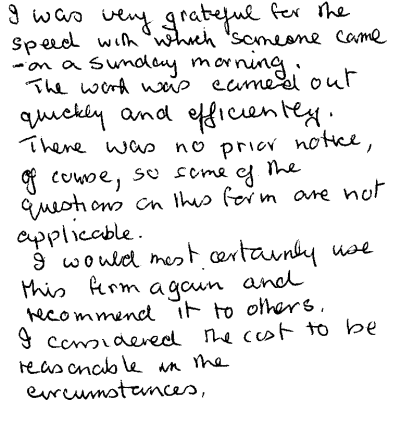 I was very grateful for the
speed with which someone came
- on a Sunday morning.
The work was carried out
quickly and efficiently.
There was no prior notice,
of course, so some of the
questions on this form are not
applicable.
I would most certainly use
this firm again and
recommend it to others.
I considered the cost to be
reasonable in the
circumstances,